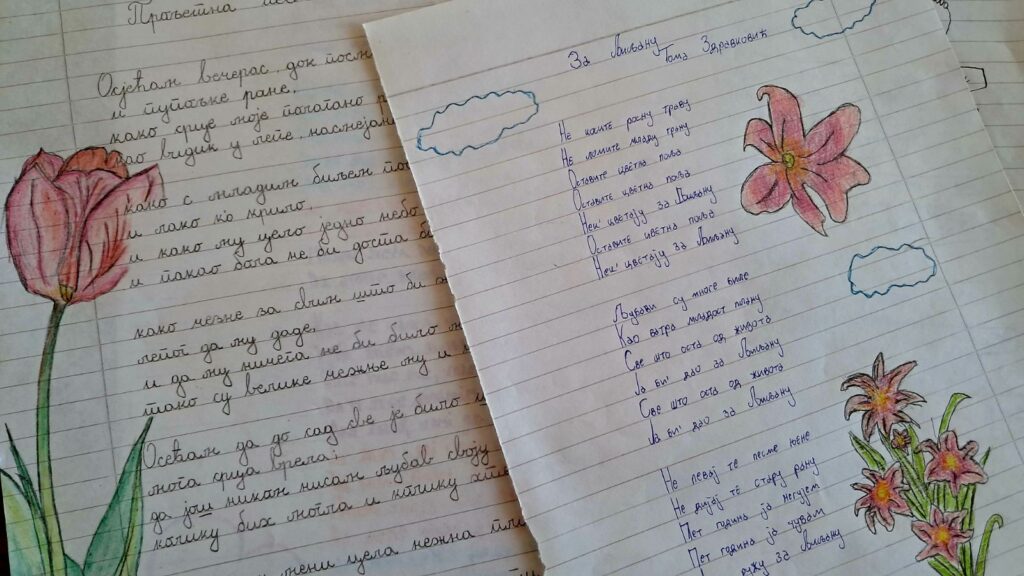 Осјећам вечерас, док посм
и пупољке ране,
како срце моје полагано р
као видик у лепе, насмејан
како с младим биљем по
и лако ко крило,
и како му цело једно небо
и пакао бола не би доста б
како чезне за свим што би
лепог да му даде,
и да му ничега не би било м
тако су велике чежње му и н
Осећам да до сад све је било ш
мога срца врела;
да још никам нисам љубав своју
колику бих могла и колику хт
мени цела нежна пли
За Љиљану
Тома Здравковић
Не косите росну траву
Не ломите младу грану
Оставите цветна поља
Оставите цветна поља
Нек' цветају за Љиљану
Оставите цветна поља
Нек' цветају за Љиљану
Љубави су многе биле
Као ватра младост плану
Све што оста од живота
Ја би' дао за Љиљану
Све што оста од живота
Ја би' дао за Љиљану
Не певај те песме њене
Не дирај те стару рану
Пет година ја негујем
Пет година ја чувам
ружу за Љиљану